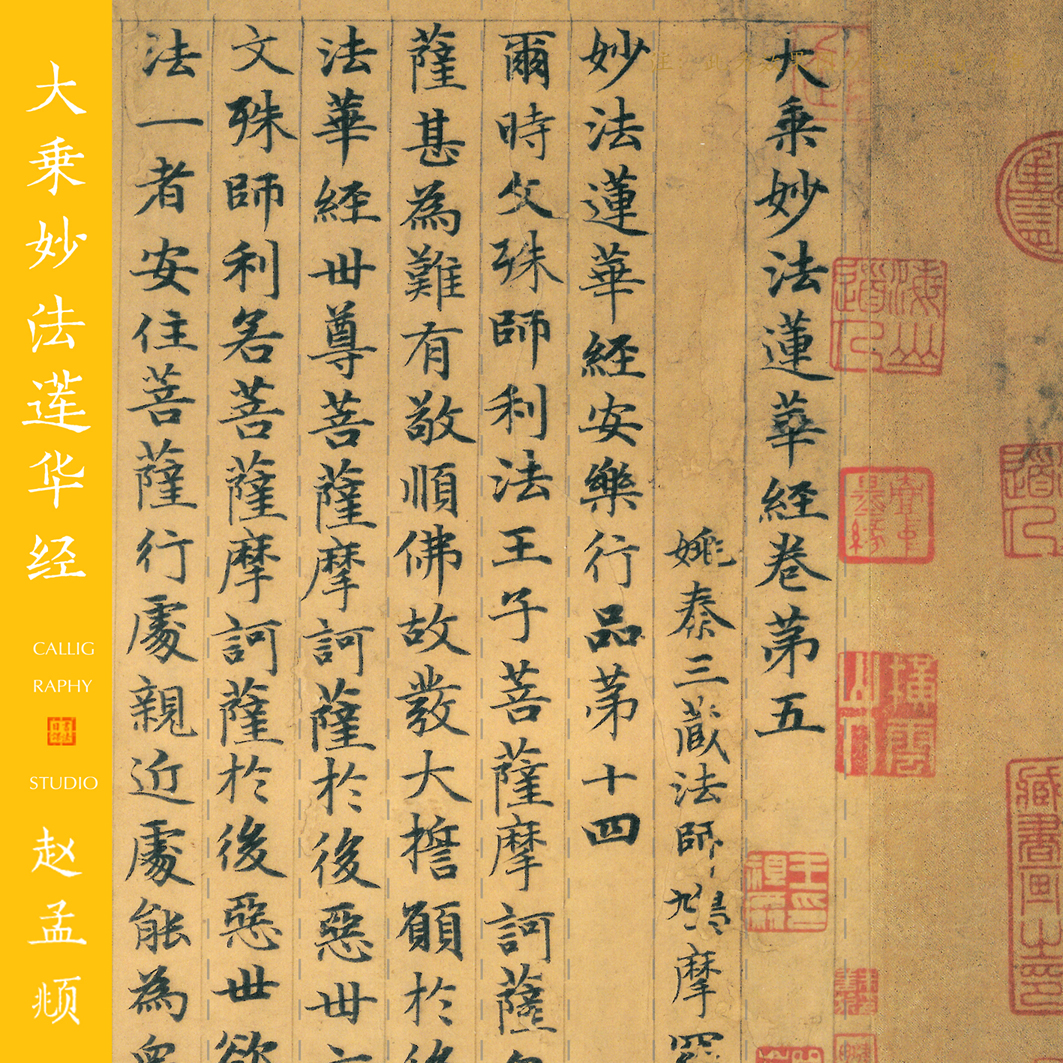 大乘妙法莲华经
CALLIG
RAPHY
STUDIO
赵孟頫
大乘妙法蓮華經卷第五
姚秦三藏法師鳩摩羅
妙法蓮華經安樂行品第十四
爾時文殊師利法王子菩薩摩訶薩
薩甚為難有敬順佛故發大誓願於後
法華經世尊菩薩摩訶薩於後惡世
文殊師利若菩薩摩訶薩於後惡世欲
法一者安住菩薩行處親近處能為眾